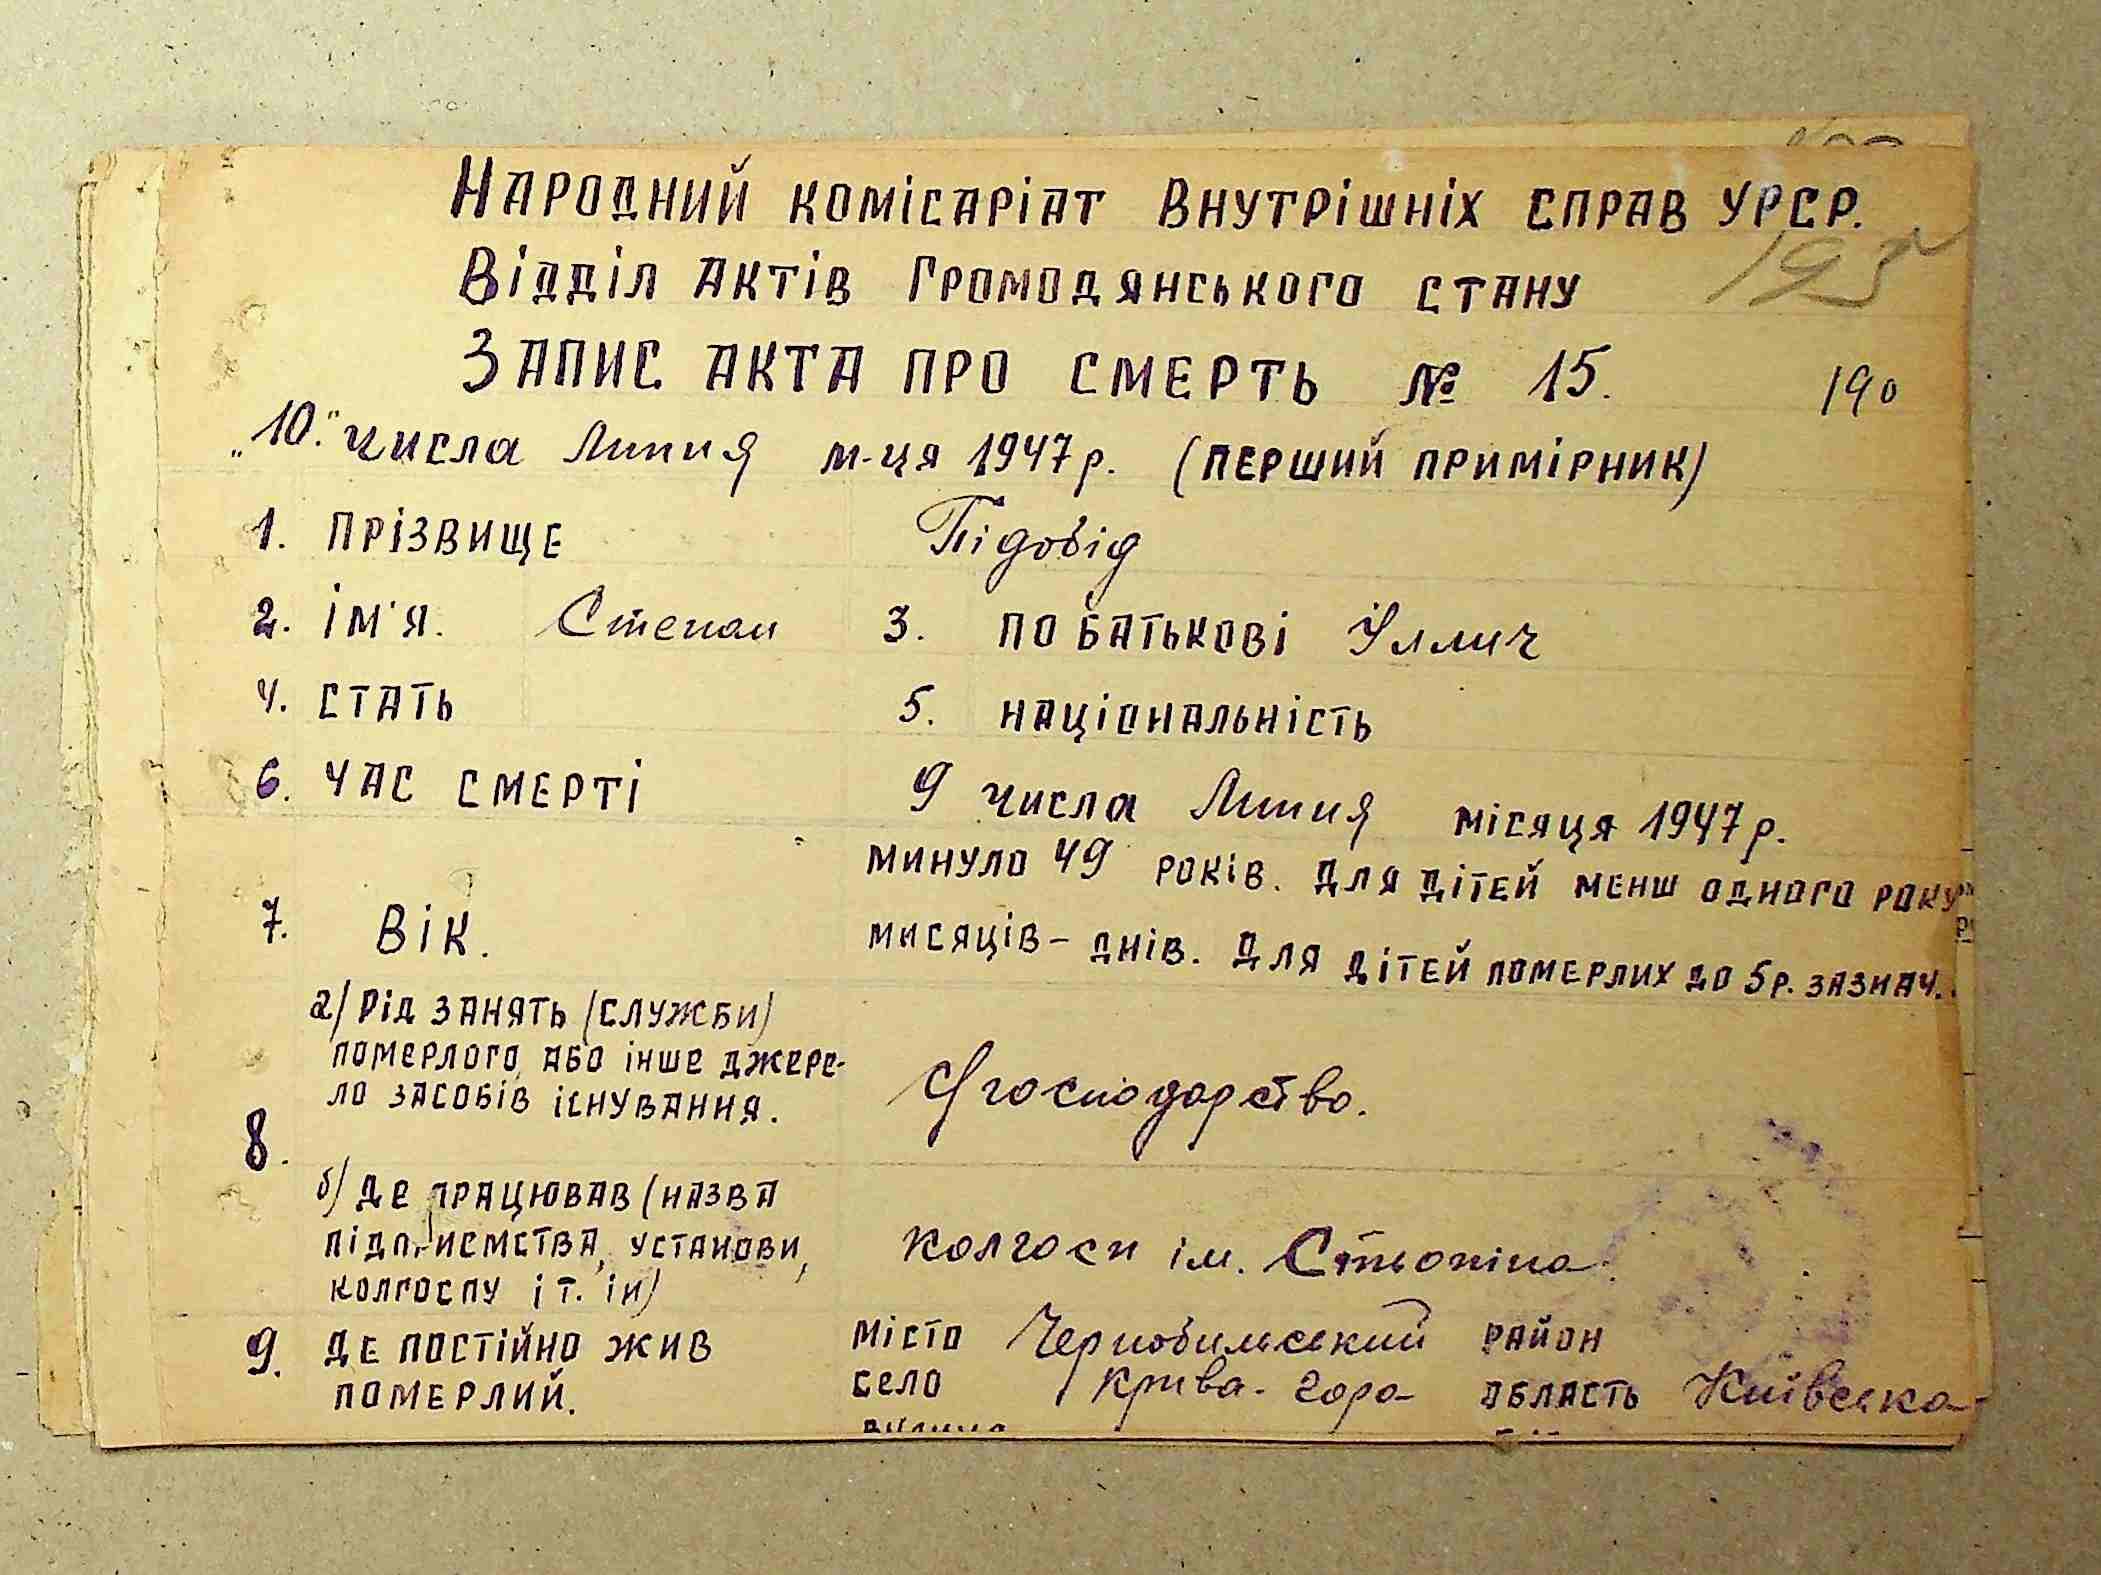 Народний комісаріат внутрішніх справ УРСР.
Відділ актів громодянського стану
195
Запис акта про смерть № 15.
190
„10." числа Липня м-ця 1947 р. (перший примірник)
1. Прізвище Підовід
2. ім'я. Степан 3. по батькові Іллич
4. стать 5. національність
6. час смерті 9 числа Липня місяця 1947 р.
7. Вік. минуло 49 років. для дітей менш одного року
мисяців – днів. для дітей померлих до 5 р. зазнач.
8. а/ рід занять (служби)
померлого, або інше джере-
ло засобів існування.
с/господарство.
б/ де працював (назва
підприємства, установи,
колгоспу і т. ін)
колгосп ім.
9. де постійно жив
померлий.
місто Чернобильский район
село Крива-гора область Київська